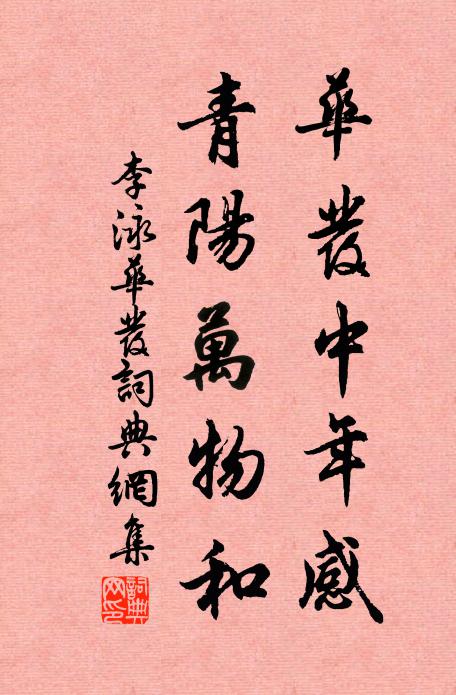 華發中年感
青陽萬物和
李泳華發詞典網集
詞典網印